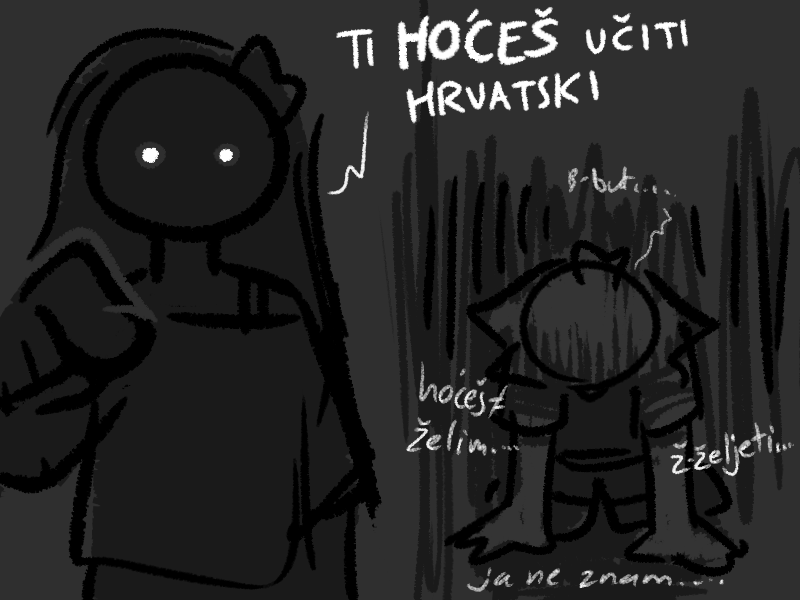 TI HOĆEŠ UČITI
HRVATSKI
B-but....
hoćeš?
želim....
ž-željeti...
ja ne znam....